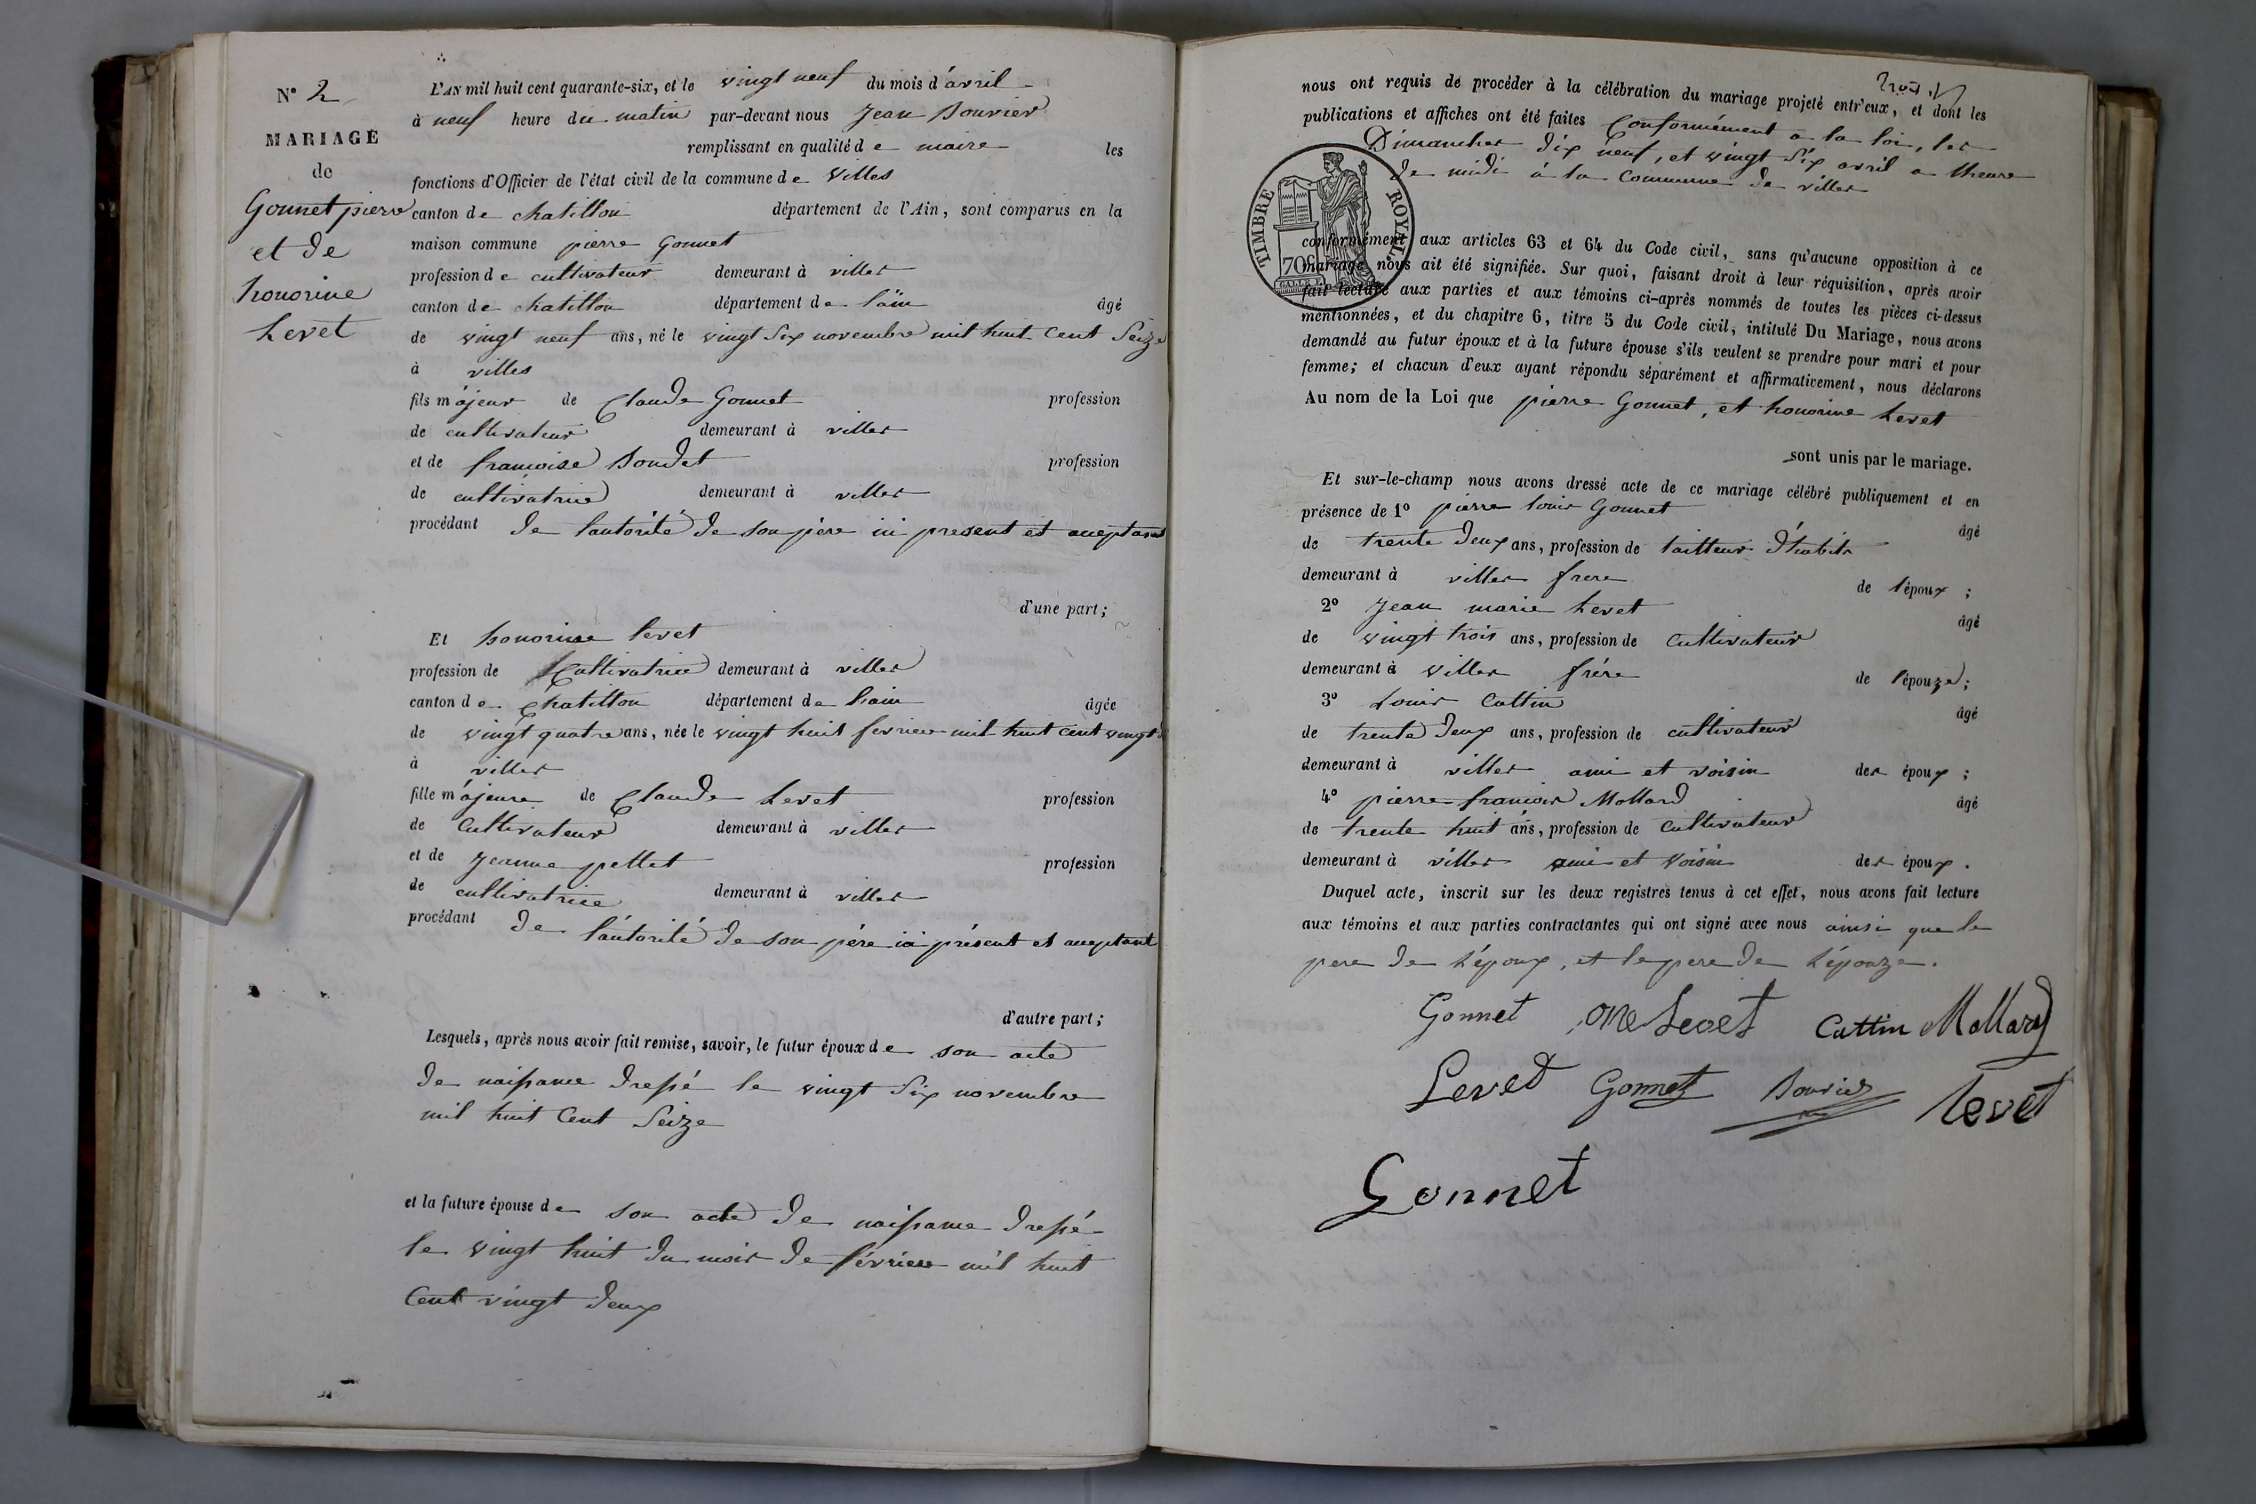 N° 2
MARIAGE
de
Gonnet pierre
et de
honorine
Levet
L'AN mil huit cent quarante-six, et le vingt neuf du mois d'avril
à neuf heure du matin par-devant nous Jean Bouvier
remplissant en qualité de maire les
fonctions d'Officier de l'état civil de la commune de Villes
canton de chatillon département de l'Ain, sont comparus en la
maison commune pierre Gonnet
profession de cultivateur demeurant à villes
canton de chatillon département de l'ain âgé
de vingt neuf ans, né le vingt six novembre mil huit cent Seize
à villes
fils majeur de Claude Gonnet profession
de cultivateur demeurant à villes
et de francoise Boudet profession
de cultivatrice demeurant à villes
procédant de lautorité de son père ici present et aceptant
d'une part;
Et honorine levet
profession de Cultivatrice demeurant à villes
canton de Chatillon département de lain âgée
de vingt quatre ans, née le vingt huit fevrier mil huit cent vingt
à villes
fille majeure de Claude Levet profession
de Cultivateur demeurant à villes
et de Jeanne pellet profession
de cultivatrice demeurant à villes
procédant de l'autorité de son père ici présent et aceptant
d'autre part;
Lesquels, après nous avoir fait remise, savoir, le futur époux de son acte
de naissance dressé le vingt six novembre
mil huit Cent Seize
et la future épouse de son acte de naissance dressé
le vingt huit du mois de février mil huit
Cent vingt deux
nous ont requis de procéder à la célébration du mariage projeté entr'eux, et dont les
publications et affiches ont été faites Conformément a la loi, les
Dimanches dix neuf, et vingt Six avril a lheure
de midi à la Commune de villes
TIMBRE ROYAL
70c
conformément aux articles 63 et 64 du Code civil, sans qu'aucune opposition à ce
mariage nous ait été signifiée. Sur quoi, faisant droit à leur réquisition, après avoir
fait lecture aux parties et aux témoins ci-après nommés de toutes les pièces ci-dessus
mentionnées, et du chapitre 6, titre 5 du Code civil, intitulé Du Mariage, nous avons
demandé au futur époux et à la future épouse s'ils veulent se prendre pour mari et pour
femme; et chacun d'eux ayant répondu séparément et affirmativement, nous déclarons
Au nom de la Loi que pierre Gonnet, et honorine Levet
sont unis par le mariage.
Et sur-le-champ nous avons dressé acte de ce mariage célébré publiquement et en
présence de 1° pierre louis Gonnet âgé
de trente deux ans, profession de tailleur d'habits
demeurant à villes frere de lépoux;
2° Jean marie Levet âgé
de vingt trois ans, profession de Cultivateur
demeurant à Villes frère de lépouze;
3° Louis Cattin âgé
de trente deux ans, profession de cultivateur
demeurant à villes ami et voisin des époux;
4° pierre francois Mollard âgé
de trente huit ans, profession de Cultivateur
demeurant à villes ami et Voisin des époux.
Duquel acte, inscrit sur les deux registres tenus à cet effet, nous avons fait lecture
aux témoins et aux parties contractantes qui ont signé avec nous ainsi que le
pere de l'époux, et le pere de l'épouze.
Gonnet Levet Cattin Mollard
Levet Gonnet Bouvier levet
Gonnet